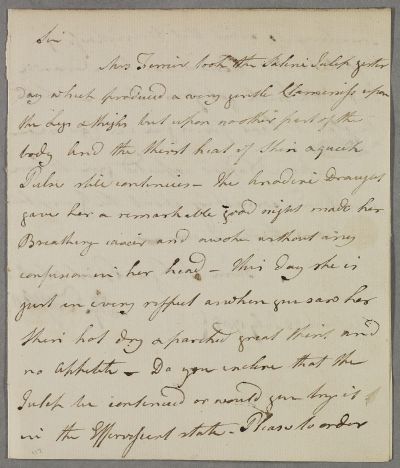 Sir
Mrs Ferrier took the Saline Julep yester
day which produced a very gentle Clamminess upon
the Legs & thighs but upon no other part of the
body And the thirst heat of Skin & quick
Pulse still continues – The Anodine Draught
gave her a remarkable good night made her
Breathing easier and awoke without any
confusion in her head – This day she is
just in every respect as when you saw her
Skin hot dry & parched great thirst and
no appetite – Do you incline that the
Julep be continued or would you try it
in the Effervescent state – Please to order